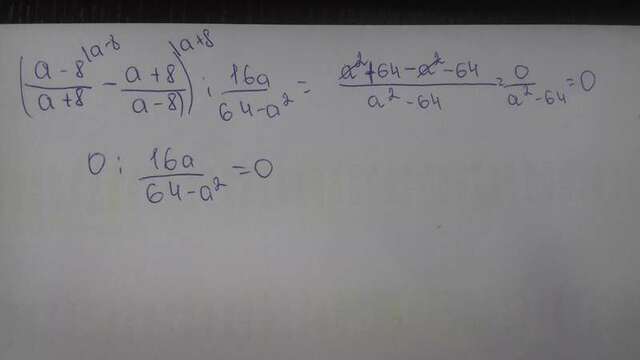 (a-8/a+8 |a-8 - a+8/a-8 |a+8) : 16a/64-a² = a²+64-a²-64/a²-64 = 0/a²-64 = 0
0 : 16a/64-a² = 0